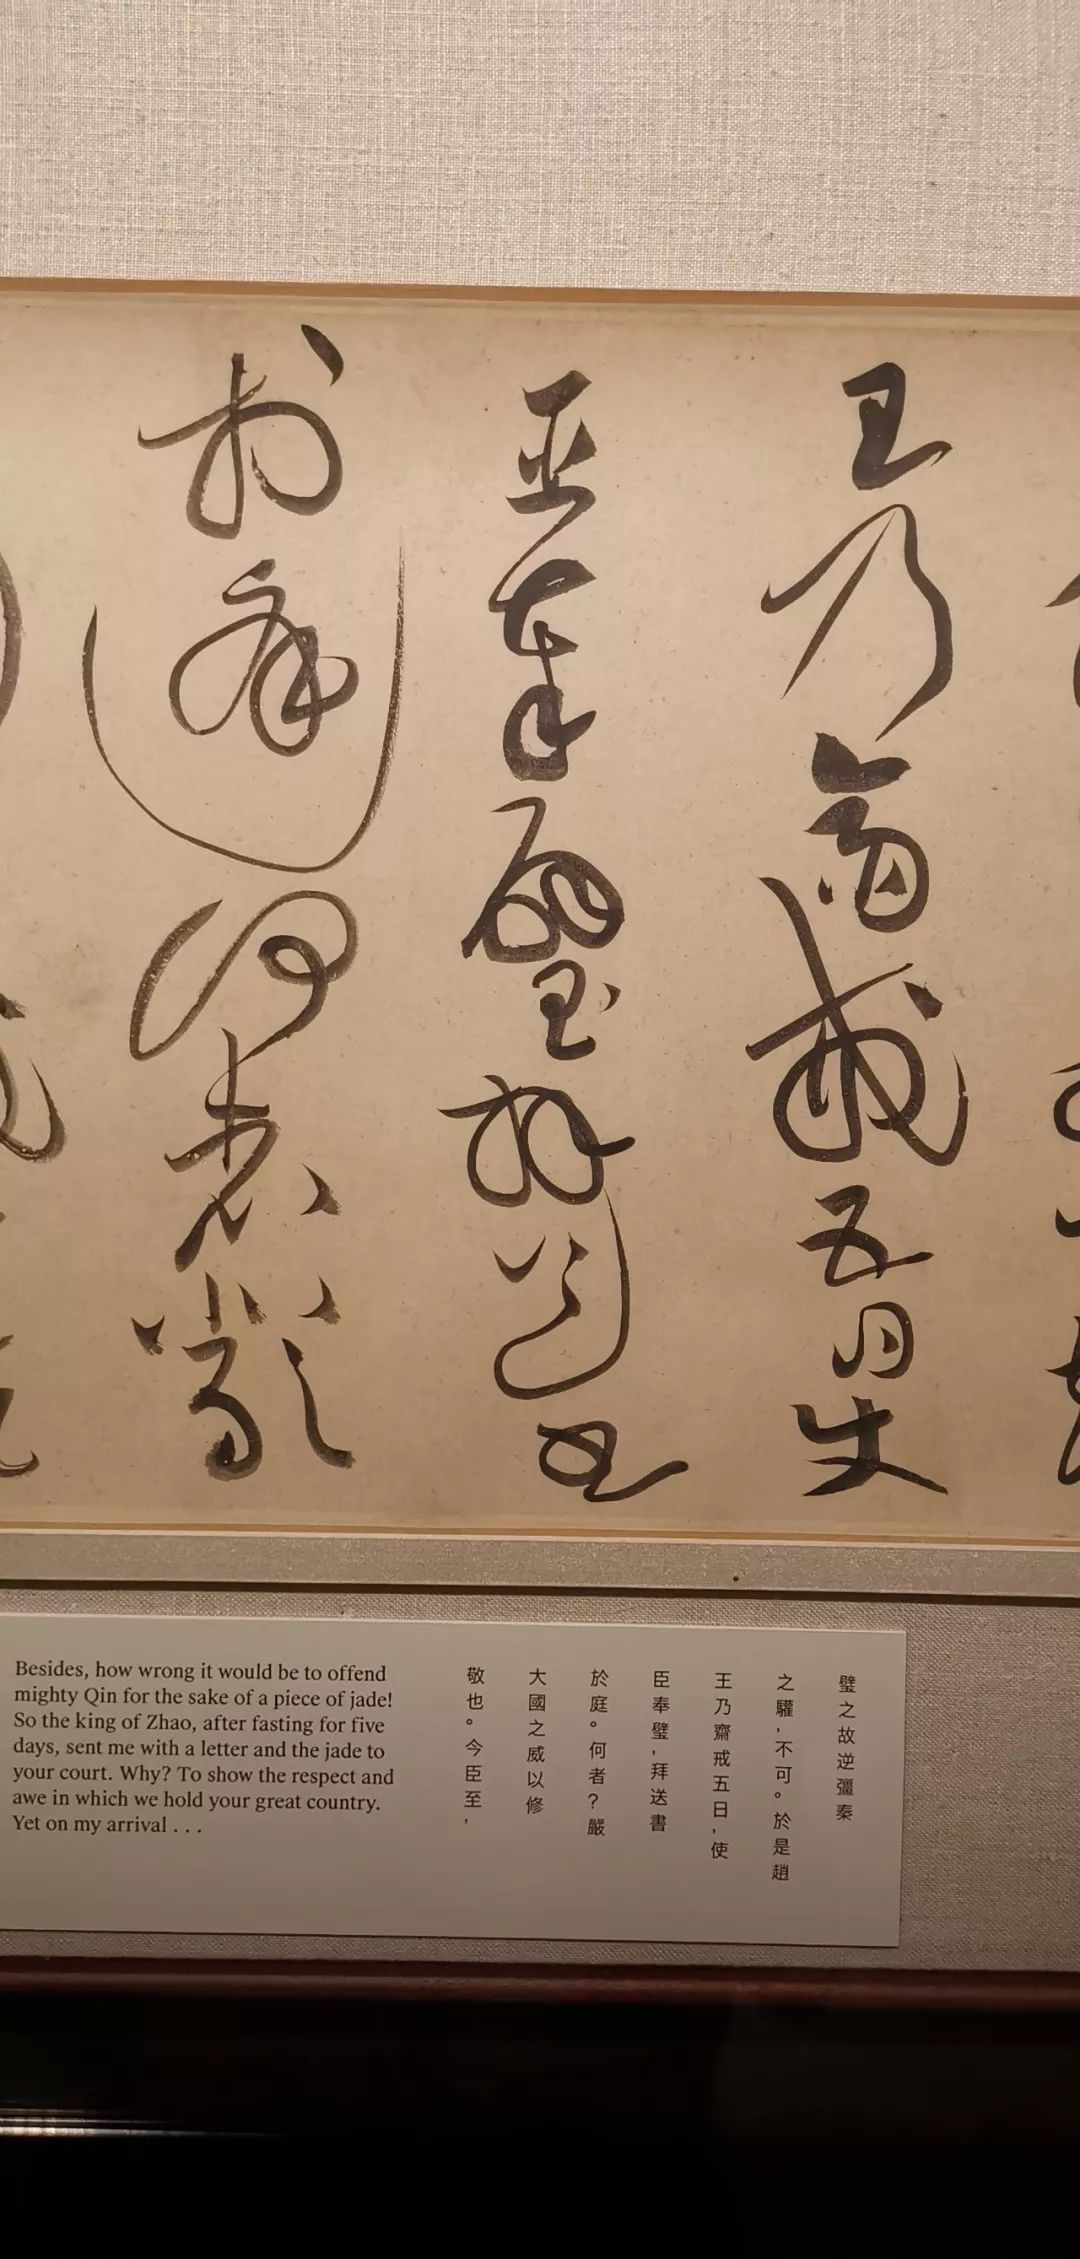 王乃齋戒五日使
臣奉璧拜送書
於庭何者嚴
Besides, how wrong it would be to offend
mighty Qin for the sake of a piece of jade!
So the king of Zhao, after fasting for five
days, sent me with a letter and the jade to
your court. Why? To show the respect and
awe in which we hold your great country.
Yet on my arrival . . .
璧之故逆彊秦
之驩，不可。於是趙
王乃齋戒五日，使
臣奉璧，拜送書
於庭。何者？嚴
大國之威以修
敬也。今臣至，